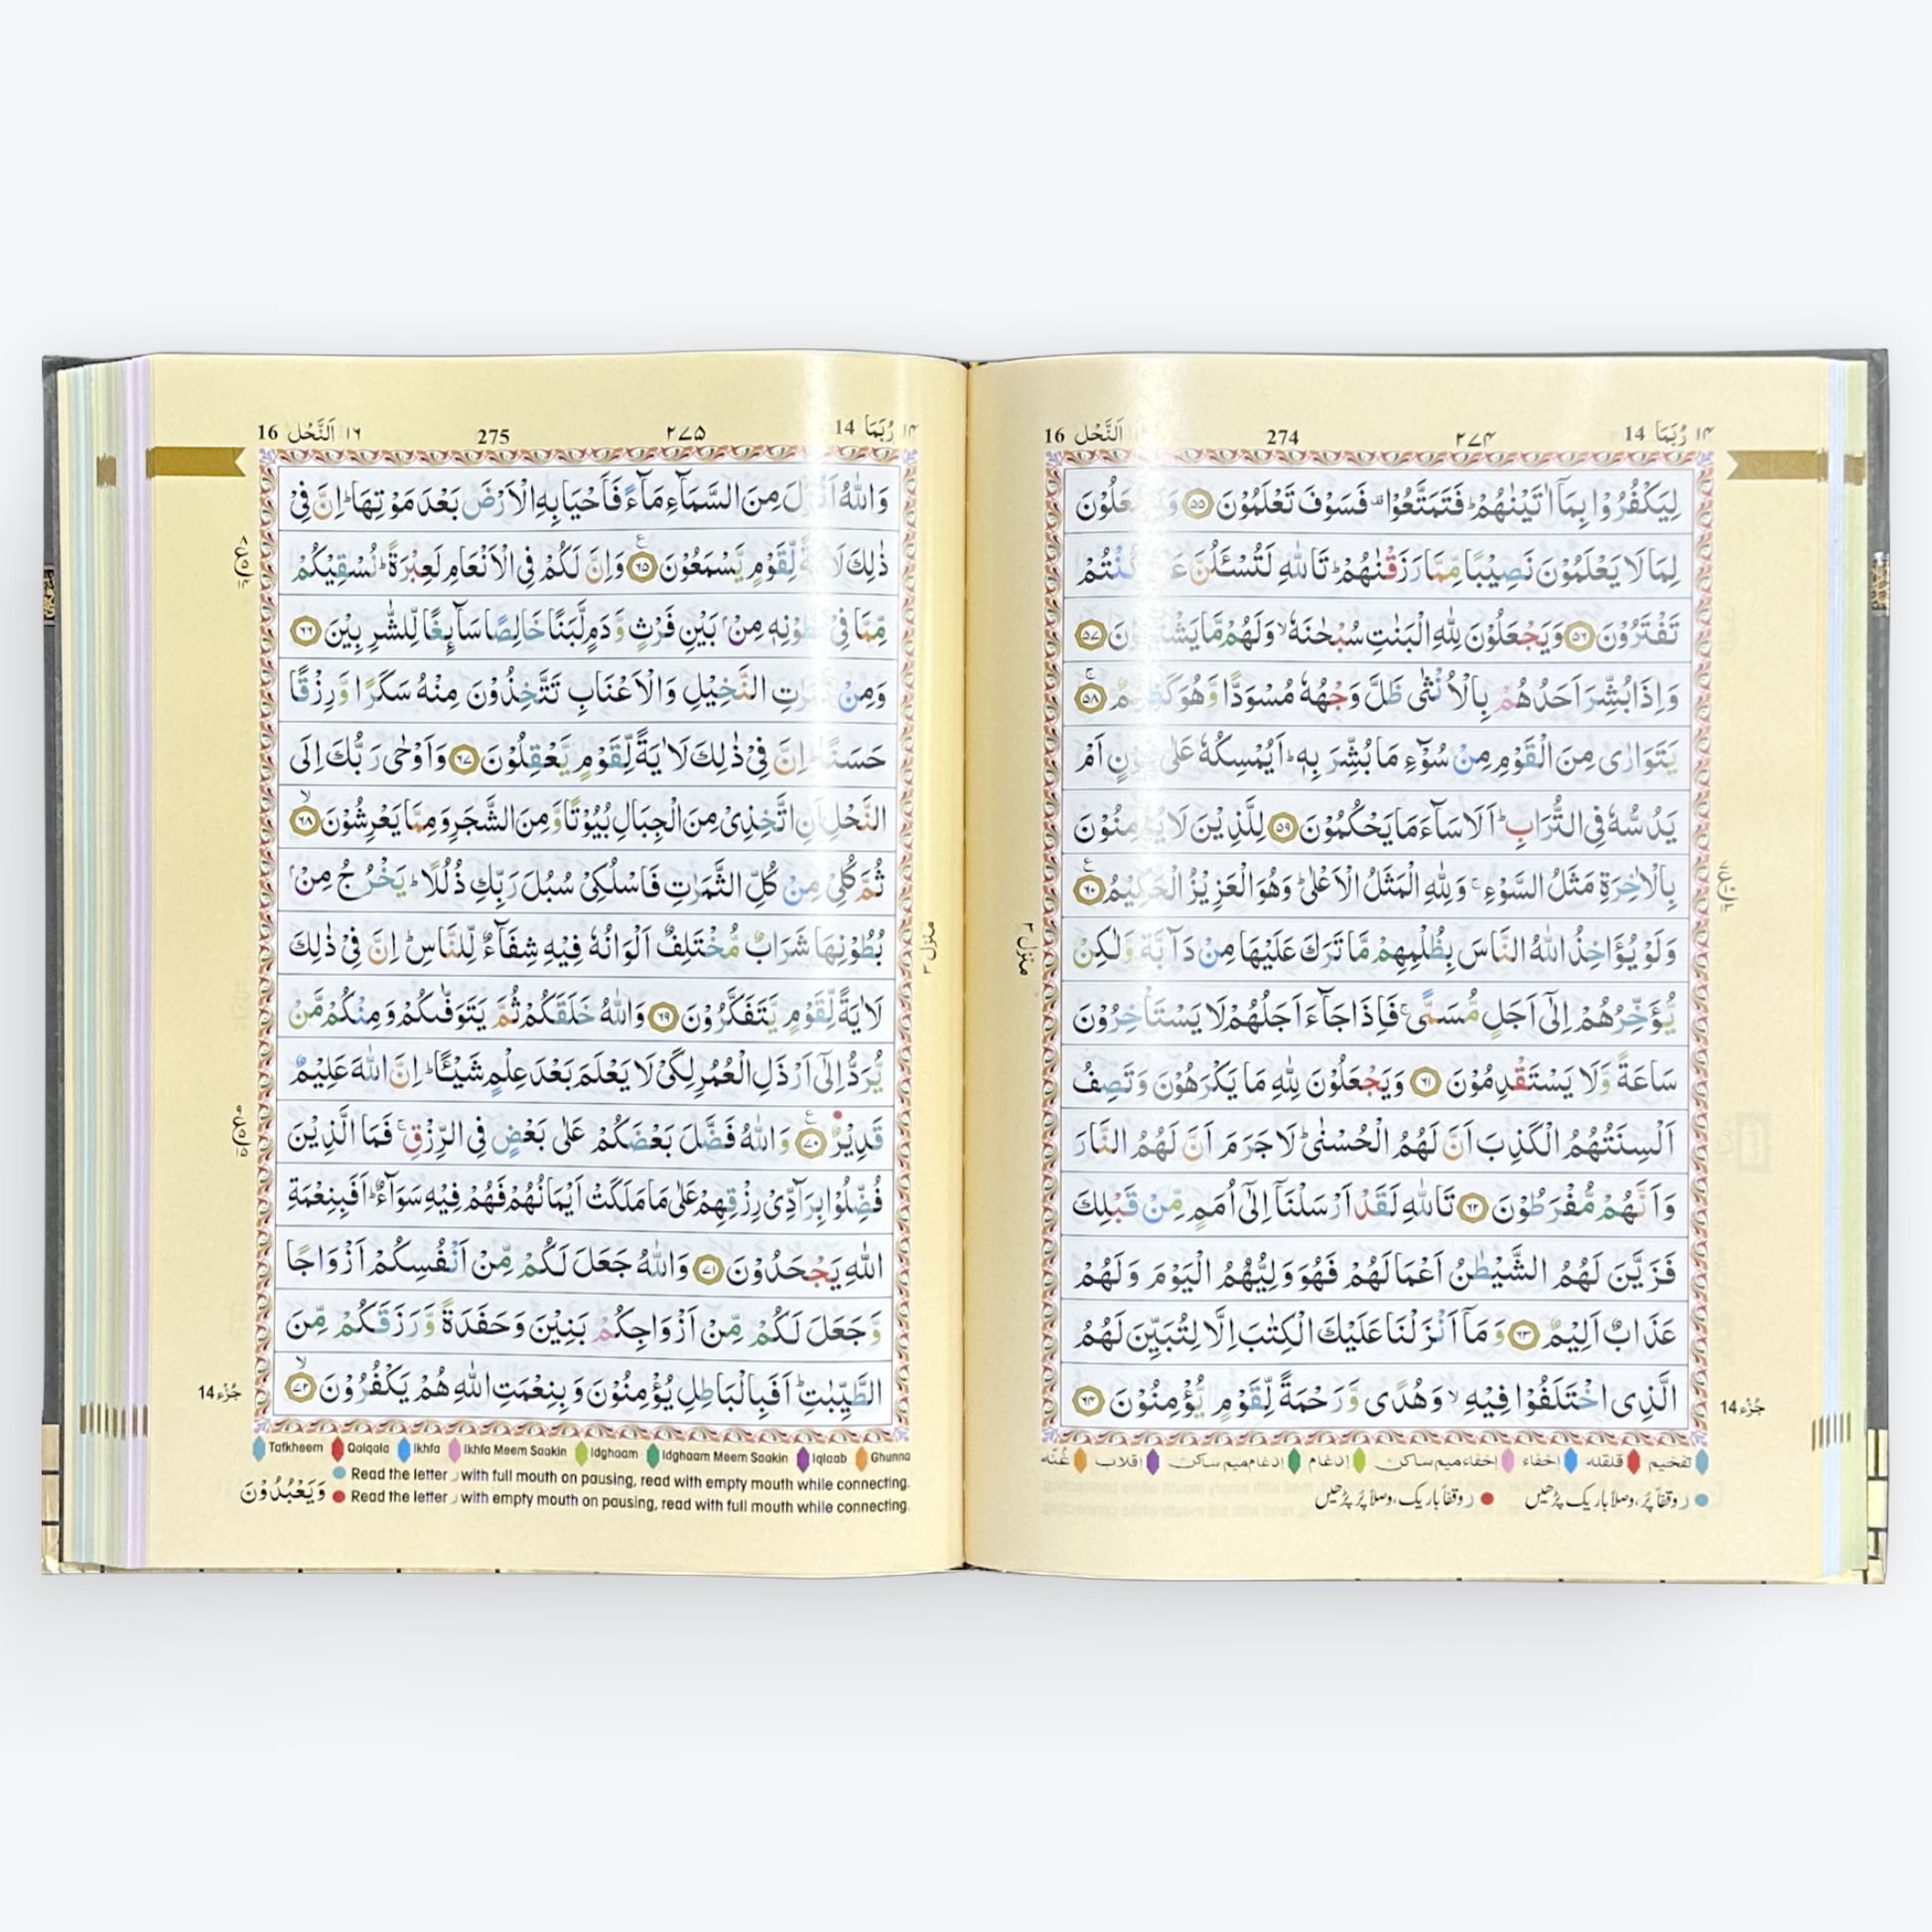 ١٤ رُبَمَا 14
٢٧٤
274
اَلنَّحْل 16
لِيَكْفُرُوْا بِمَاۤ اٰتَيْنٰهُمْ ؕ فَتَمَتَّعُوْا ۫ فَسَوْفَ تَعْلَمُوْنَ ﴿۵۵﴾
لِمَا لَا يَعْلَمُوْنَ نَصِيْبًا مِّمَّا رَزَقْنٰهُمْ ؕ تَاللّٰهِ لَتُسْـَٔلُنَّ كُنْتُمْ
تَفْتَرُوْنَ ﴿۵۶﴾ وَيَجْعَلُوْنَ لِلّٰهِ الْبَنٰتِ سُبْحٰنَهٗ ۙ وَلَهُمْ مَّا يَشْتَهُوْنَ ﴿۵۷﴾
وَاِذَا بُشِّرَ اَحَدُهُمْ بِالْاُنْثٰى ظَلَّ وَجْهُهٗ مُسْوَدًّا وَّهُوَ كَظِيْمٌ ﴿۵۸﴾
يَتَوَارٰى مِنَ الْقَوْمِ مِنْ سُوْٓءِ مَا بُشِّرَ بِهٖ ؕ اَيُمْسِكُهٗ عَلٰى هُوْنٍ اَمْ
يَدُسُّهٗ فِى التُّرَابِ ؕ اَلَا سَآءَ مَا يَحْكُمُوْنَ ﴿۵۹﴾ لِلَّذِيْنَ لَا يُؤْمِنُوْنَ
بِالْاٰخِرَةِ مَثَلُ السَّوْءِ ۚ وَلِلّٰهِ الْمَثَلُ الْاَعْلٰى ؕ وَهُوَ الْعَزِيْزُ الْحَكِيْمُ ﴿۶۰﴾
وَلَوْ يُؤَاخِذُ اللّٰهُ النَّاسَ بِظُلْمِهِمْ مَّا تَرَكَ عَلَيْهَا مِنْ دَآبَّةٍ وَّلٰكِنْ
يُّؤَخِّرُهُمْ اِلٰٓى اَجَلٍ مُّسَمًّى ۚ فَاِذَا جَآءَ اَجَلُهُمْ لَا يَسْتَاْخِرُوْنَ
سَاعَةً وَّلَا يَسْتَقْدِمُوْنَ ﴿۶۱﴾ وَيَجْعَلُوْنَ لِلّٰهِ مَا يَكْرَهُوْنَ وَتَصِفُ
اَلْسِنَتُهُمُ الْكَذِبَ اَنَّ لَهُمُ الْحُسْنٰى ؕ لَا جَرَمَ اَنَّ لَهُمُ النَّارَ
وَاَنَّهُمْ مُّفْرَطُوْنَ ﴿۶۲﴾ تَاللّٰهِ لَقَدْ اَرْسَلْنَآ اِلٰٓى اُمَمٍ مِّنْ قَبْلِكَ
فَزَيَّنَ لَهُمُ الشَّيْطٰنُ اَعْمَالَهُمْ فَهُوَ وَلِيُّهُمُ الْيَوْمَ وَلَهُمْ
عَذَابٌ اَلِيْمٌ ﴿۶۳﴾ وَمَآ اَنْزَلْنَا عَلَيْكَ الْكِتٰبَ اِلَّا لِتُبَيِّنَ لَهُمُ
الَّذِى اخْتَلَفُوْا فِيْهِ ۙ وَهُدًى وَّرَحْمَةً لِّقَوْمٍ يُّؤْمِنُوْنَ ﴿۶۴﴾
منزل ٣
جُزْء 14
تفخيم قلقله إخفاء إخفاءميم ساكن إدغام إدغام ميم ساكن اقلاب غُنّه
ر وقفاً پُر، وصلاً باریک پڑھیں ر وقفاً باریک، وصلاً پُر پڑھیں
١٤ رُبَمَا 14
٢٧٥
275
١٦ اَلنَّحْل 16
وَاللّٰهُ اَنْزَلَ مِنَ السَّمَآءِ مَآءً فَاَحْيَا بِهِ الْاَرْضَ بَعْدَ مَوْتِهَا ؕ اِنَّ فِىْ
ذٰلِكَ لَاٰيَةً لِّقَوْمٍ يَّسْمَعُوْنَ ﴿۶۵﴾ وَاِنَّ لَكُمْ فِى الْاَنْعَامِ لَعِبْرَةً ؕ نُسْقِيْكُمْ
مِّمَّا فِىْ بُطُوْنِهٖ مِنْۢ بَيْنِ فَرْثٍ وَّدَمٍ لَّبَنًا خَالِصًا سَآئِغًا لِّلشّٰرِبِيْنَ ﴿۶۶﴾
وَمِنْ ثَمَرٰتِ النَّخِيْلِ وَالْاَعْنَابِ تَتَّخِذُوْنَ مِنْهُ سَكَرًا وَّرِزْقًا
حَسَنًا ؕ اِنَّ فِىْ ذٰلِكَ لَاٰيَةً لِّقَوْمٍ يَّعْقِلُوْنَ ﴿۶۷﴾ وَاَوْحٰى رَبُّكَ اِلَى
النَّحْلِ اَنِ اتَّخِذِىْ مِنَ الْجِبَالِ بُيُوْتًا وَّمِنَ الشَّجَرِ وَمِمَّا يَعْرِشُوْنَ ﴿۶۸﴾
ثُمَّ كُلِىْ مِنْ كُلِّ الثَّمَرٰتِ فَاسْلُكِىْ سُبُلَ رَبِّكِ ذُلُلًا ؕ يَخْرُجُ مِنْۢ
بُطُوْنِهَا شَرَابٌ مُّخْتَلِفٌ اَلْوَانُهٗ فِيْهِ شِفَآءٌ لِّلنَّاسِ ؕ اِنَّ فِىْ ذٰلِكَ
لَاٰيَةً لِّقَوْمٍ يَّتَفَكَّرُوْنَ ﴿۶۹﴾ وَاللّٰهُ خَلَقَكُمْ ثُمَّ يَتَوَفّٰىكُمْ وَمِنْكُمْ مَّنْ
يُّرَدُّ اِلٰٓى اَرْذَلِ الْعُمُرِ لِكَىْ لَا يَعْلَمَ بَعْدَ عِلْمٍ شَيْـًٔا ؕ اِنَّ اللّٰهَ عَلِيْمٌ
قَدِيْرٌ ﴿۷۰﴾ وَاللّٰهُ فَضَّلَ بَعْضَكُمْ عَلٰى بَعْضٍ فِى الرِّزْقِ ۚ فَمَا الَّذِيْنَ
فُضِّلُوْا بِرَآدِّىْ رِزْقِهِمْ عَلٰى مَا مَلَكَتْ اَيْمَانُهُمْ فَهُمْ فِيْهِ سَوَآءٌ ؕ اَفَبِنِعْمَةِ
اللّٰهِ يَجْحَدُوْنَ ﴿۷۱﴾ وَاللّٰهُ جَعَلَ لَكُمْ مِّنْ اَنْفُسِكُمْ اَزْوَاجًا
وَّجَعَلَ لَكُمْ مِّنْ اَزْوَاجِكُمْ بَنِيْنَ وَحَفَدَةً وَّرَزَقَكُمْ مِّنَ
الطَّيِّبٰتِ ؕ اَفَبِالْبَاطِلِ يُؤْمِنُوْنَ وَبِنِعْمَتِ اللّٰهِ هُمْ يَكْفُرُوْنَ ﴿۷۲﴾
منزل ٣
جُزْء 14
Tafkheem Qalqala Ikhfa Ikhfa Meem Saakin Idghaam Idghaam Meem Saakin Iqlaab Ghunna
Read the letter ر with full mouth on pausing, read with empty mouth while connecting.
Read the letter ر with empty mouth on pausing, read with full mouth while connecting.
وَيَعْبُدُوْنَ